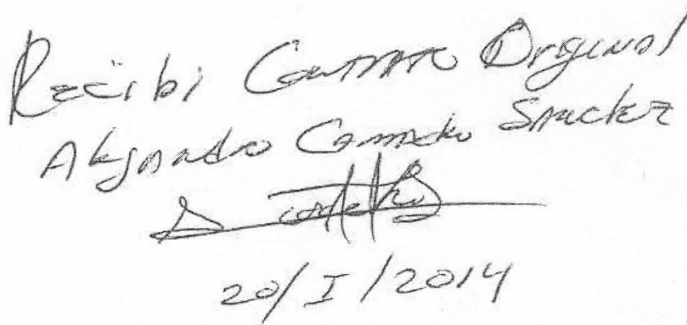 Recibi Contrato Original
Alejandro Camacho Sanchez
20/I/2014